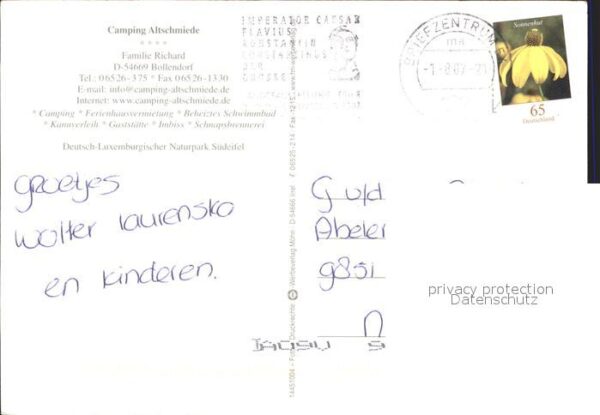 Camping Altschmiede
* * * *
Familie Richard
D-54669 Bollendorf
Tel.: 06526-375 * Fax 06526-1330
E-mail: info@camping-altschmiede.de
Internet: www.camping-altschmiede.de
* Camping * Ferienhausvermietung * Beheiztes Schwimmbad
* Kanuverleih * Gaststätte * Imbiss * Schnapsbrennerei
Deutsch-Luxemburgischer Naturpark Südeifel
groetjes
Wolter
en kinderen.
IMPERATOR CAESAR
FLAVIUS
KONSTANTIN
DER
GROSSE
BRIEFZENTRUM
Sonnenhut
65
Deutschland
Abeler
9851
N
Werbeverlag Mönn D-54666 Irrel
06526-214
privacy protection
Datenschutz